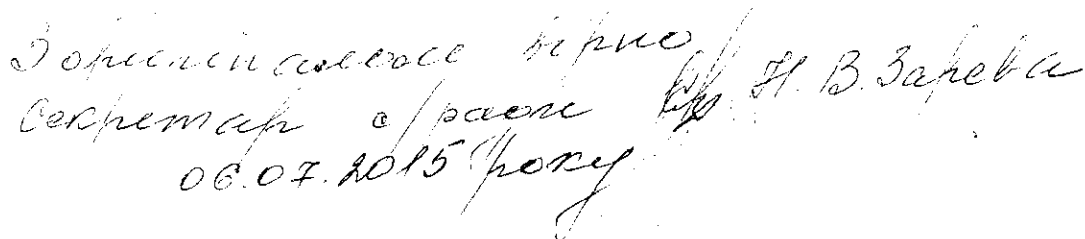 З оригіналом вірно
секретар с/ради Н.В. Зарева
06.07.2015 року